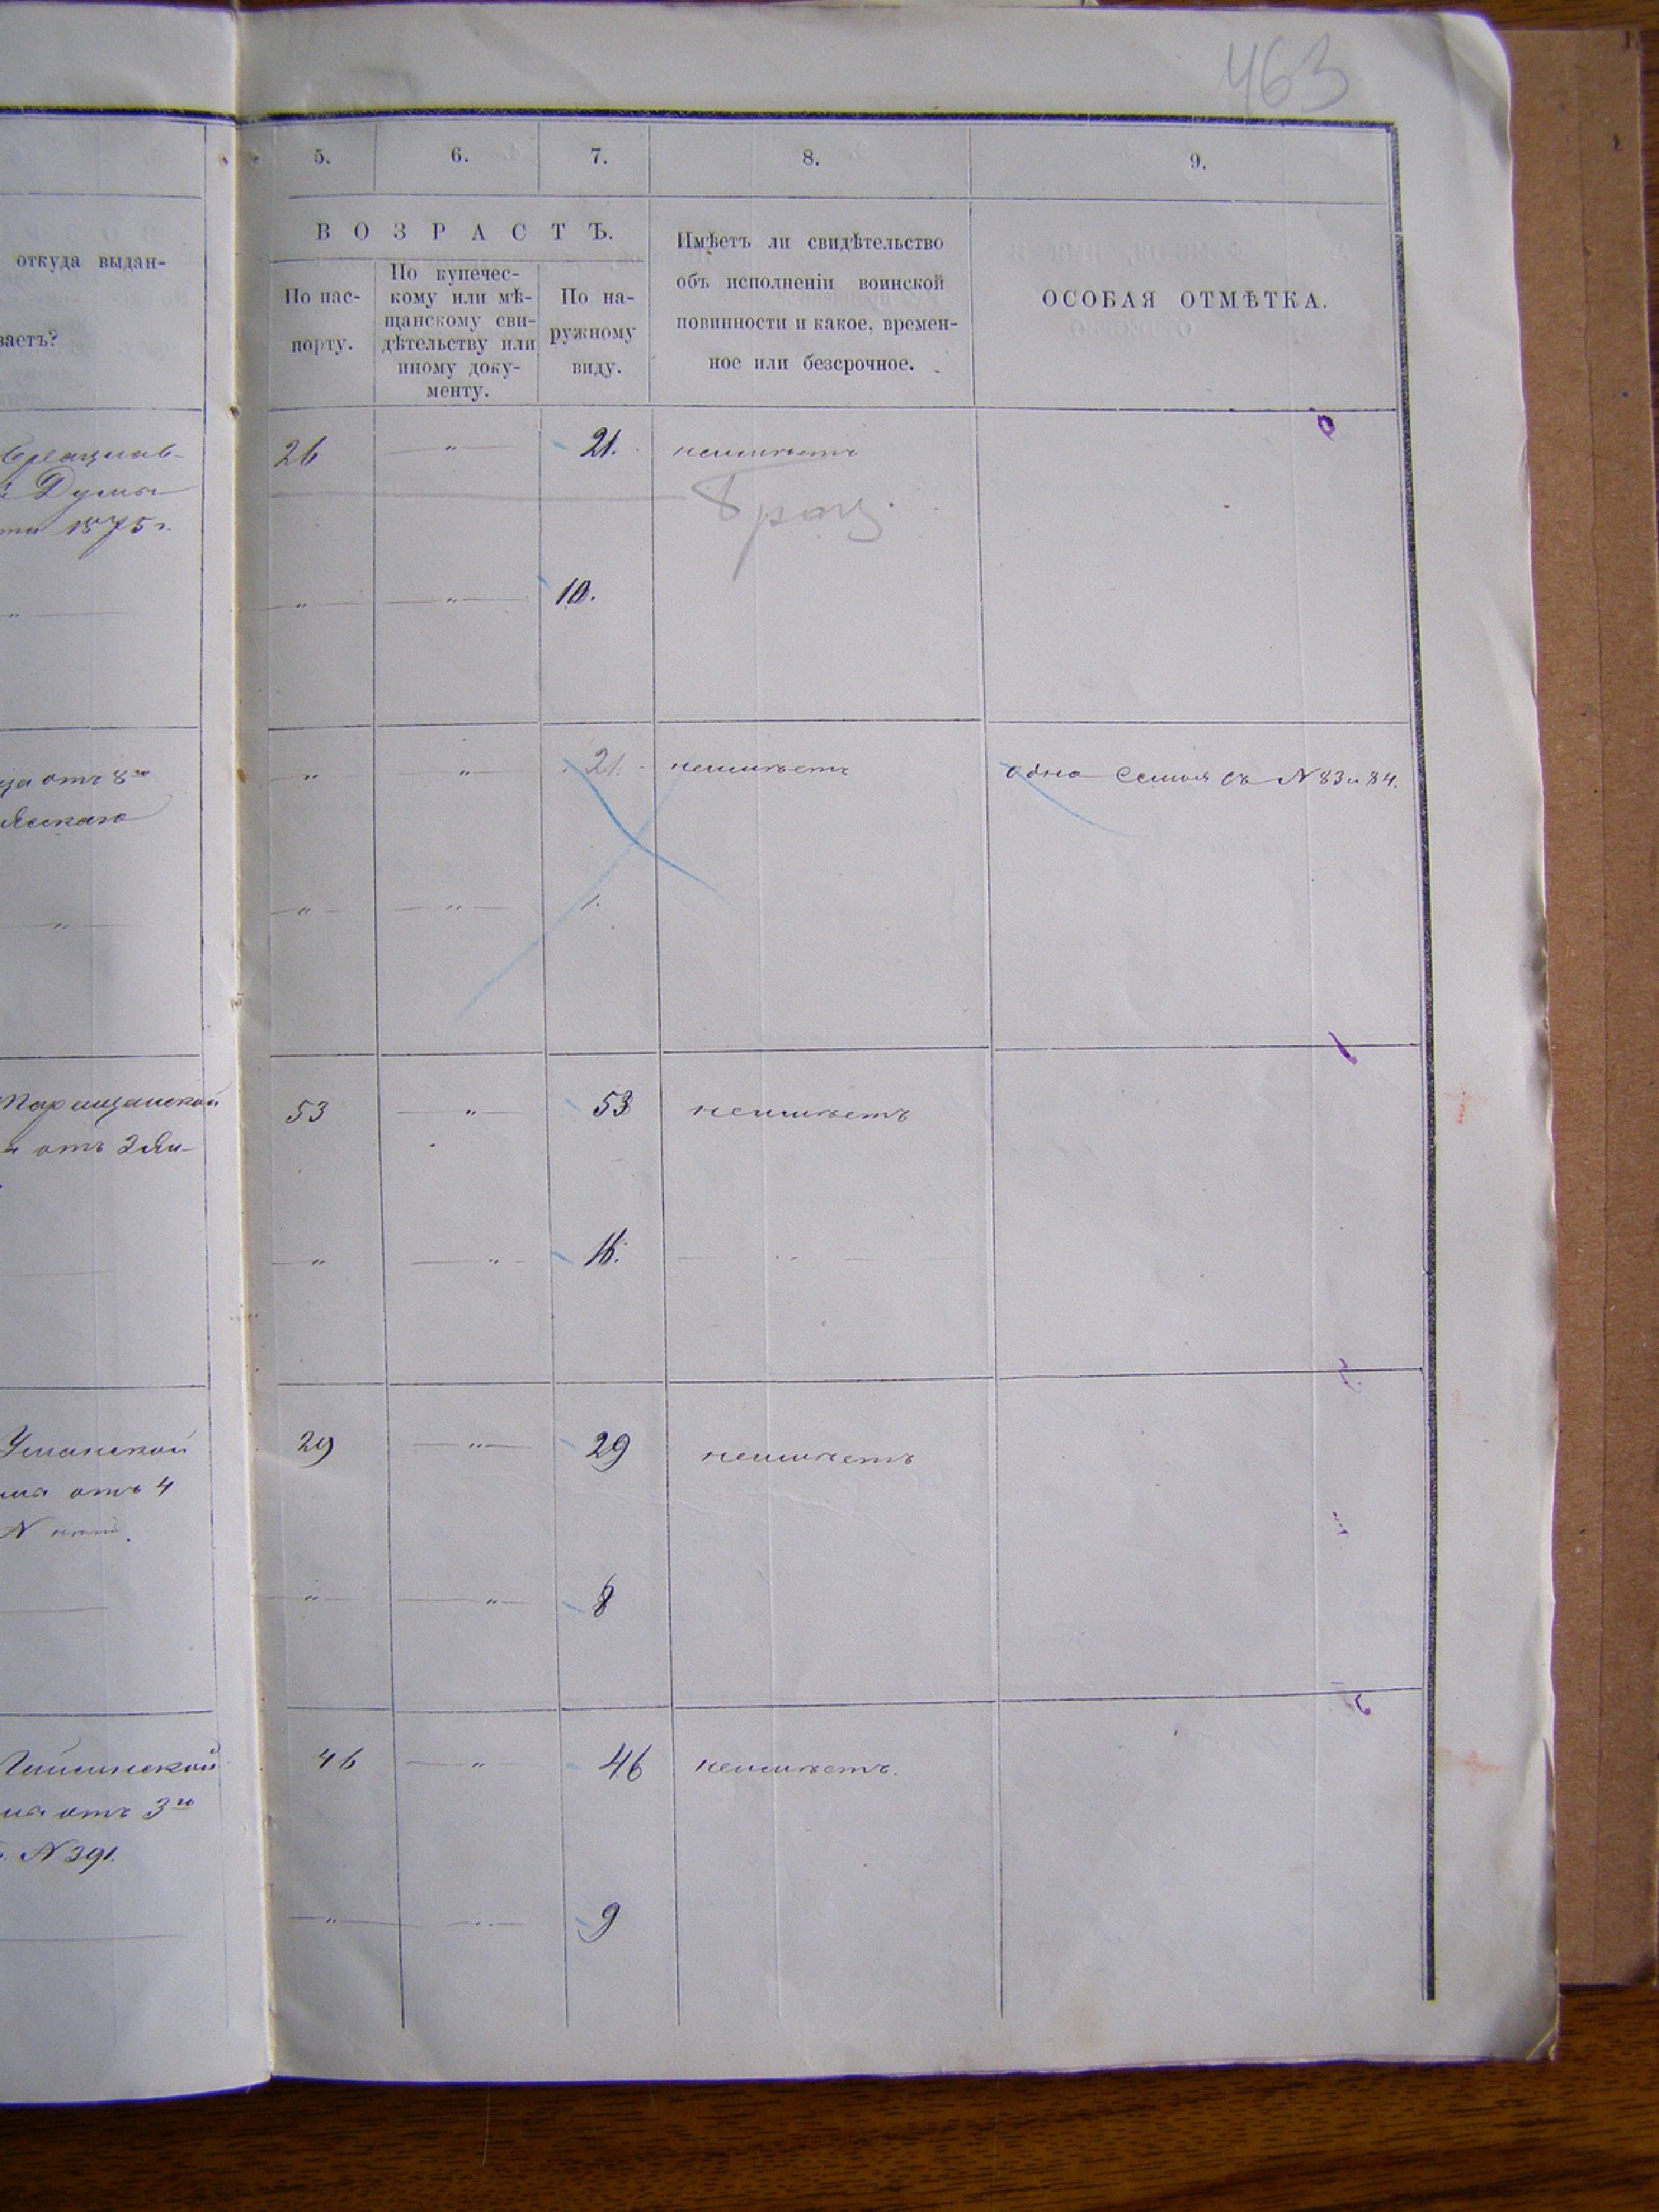 463
5. 6. 7. 8. 9.
откуда выдан-
ваетъ?
ВОЗРАСТЪ.
По пас-
порту.
По купечес-
кому или мѣ-
щанскому сви-
дѣтельству или
иному доку-
менту.
По на-
ружному
виду.
Имѣетъ ли свидѣтельство
объ исполненіи воинской
повинности и какое, времен-
ное или безсрочное.
ОСОБАЯ ОТМѢТКА.
26 — " — 21. неимѣетъ
Думы
1875 г.
Брац.
" — " — 10.
отъ 8го
" " 21. неимѣетъ одна семья съ N 83 и 84.
" — " — 1.
53 — " — 53 неимѣетъ
отъ 3 Ян-
" — " — 16.
Уманской
29 — " — 29 неимѣетъ
отъ 4
N
" — " — 8
Гайсинской
46 — " — 46 неимѣетъ.
отъ 3го
N 391.
" — " — 9